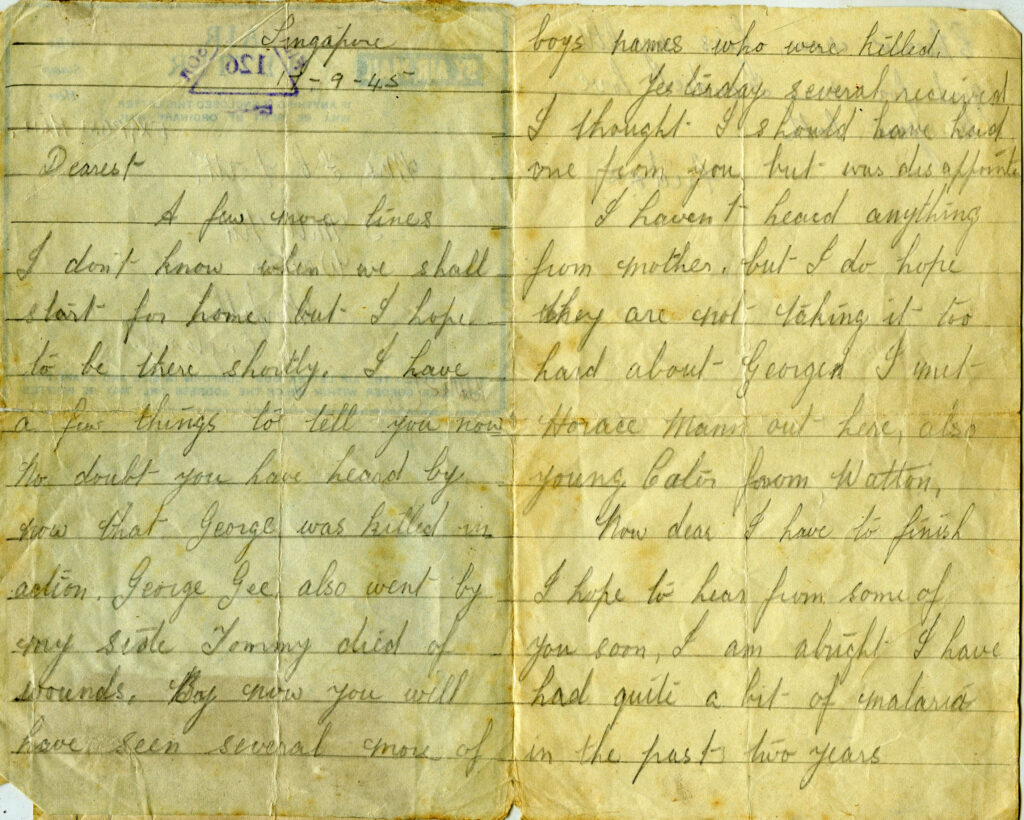 Singapore
126
-9-45
Dearest
A few more lines
I don't know when we shall
start for home but I hope
to be there shortly. I have
a few things to tell you now
No doubt you have heard by
now that George was killed in
action. George Gee also went by
my side Tommy died of
wounds. By now you will
have seen several more of
boys names who were killed.
Yesterday several received
I thought I should have had
one from you but was disappointe
I haven't heard anything
from mother. but I do hope
they are not taking it too
hard about George I met
Horace Mann out here, also
young Cator from Watton,
Now dear I have to finish
I hope to hear from some of
you soon, I am alright I have
had quite a bit of malaria
in the past two years